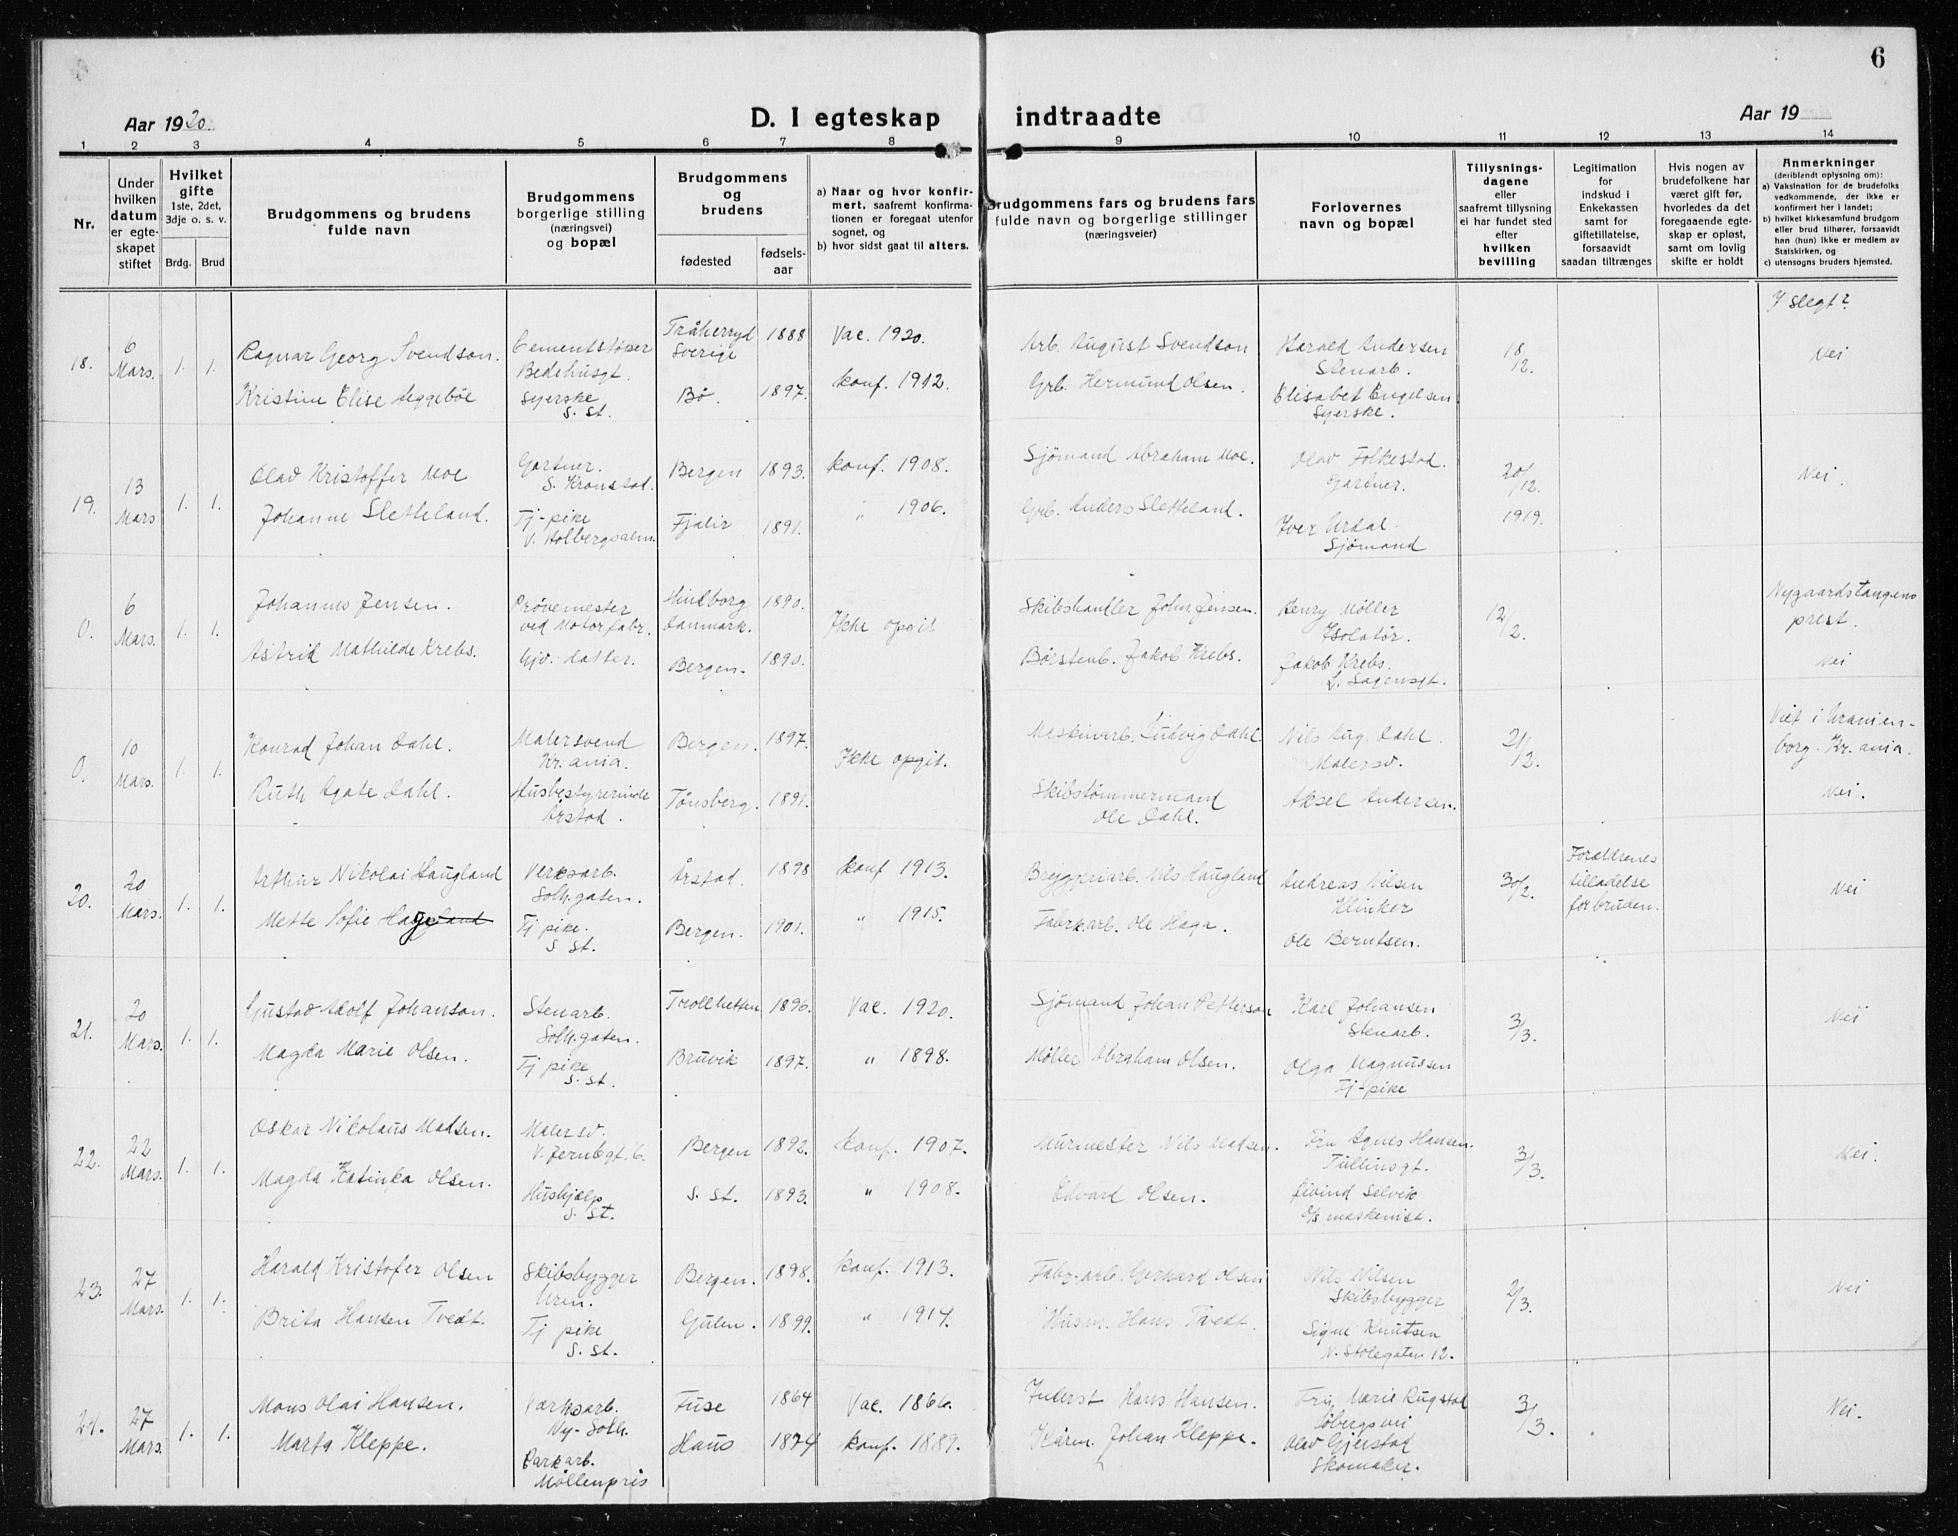 6
Aar 1920.
D. I egteskap indtraadte
Aar 19
1 2 3 4 5 6 7 8 9 10 11 12 13 14
Nr.
Under hvilken datum er egteskapet stiftet
Hvilket gifte
1ste, 2det, 3dje o. s. v.
Brdg. Brud
Brudgommens og brudens
fulde navn
Brudgommens
borgerlige stilling
(næringsvei)
og bopæl
Brudgommens
og
brudens
fødested
fødsels-
aar
a) Naar og hvor konfir-
mert, saafremt konfirma-
tionen er foregaat utenfor
sognet, og
b) hvor sidst gaat til alters.
Brudgommens fars og brudens fars
fulde navn og borgerlige stillinger
(næringsveier)
Forlovernes
navn og bopæl
Tillysnings-
dagene
eller
saafremt tillysning
ei har fundet sted
efter
hvilken
bevilling
Legitimation
for
indskud i
Enkekassen
samt for
giftetillatelse,
forsaavidt
saadan tiltrænges
Hvis nogen av
brudefolkene har
været gift før,
hvorledes da det
foregaaende egte-
skap er opløst,
samt om lovlig
skifte er holdt
Anmerkninger
(deriblandt oplysning om):
a) Vaksination for de brudefolks
vedkommende, der ikke er
konfirmert her i landet;
b) hvilket kirkesamfund brudgom
eller brud tilhører, forsaavidt
han (hun) ikke er medlem av
Statskirken, og
c) utensogns bruders hjemsted.
I slegt?
18. 6 Mars. 1. 1.
Ragnar Georg Svendson.
Kristine Elise Aeggebøe
Cementstøper
Bedehusgt.
Syerske
S. St.
Tråherryd
Sverige
1888
Bø. 1897.
Vac. 1920.
konf. 1912.
Arb. August Svendson
Grb. Hermund Olsen.
Harald Andersen
Stenarb.
Elisabet Engelsen
Syerske.
18/12.
Nei
19. 13 Mars 1. 1.
Olav Kristoffer Moe
Johanne Sletteland.
Gartner.
S. Kronstad.
Tj-pike
V. Holbergsalm.
Bergen 1893.
Fjalir 1891.
konf. 1908.
" 1906.
Sjömand Abraham Moe.
Grb. Anders Sletteland.
Olav Folkestad.
Gartner.
Iver Urdal.
Sjömand
20/12.
1919.
Nei.
0. 6 Mars. 1. 1.
Johannes Jensen.
Astrid Mathilde Krebs.
Prövemester
ved Motorfabr.
Hjv. datter.
Hindborg
Danmark.
1890.
Bergen. 1890.
Ikke opgit
Skibshandler John Jensen.
Børstenb. Jakob Krebs.
Henry Møller
Isolatør.
Jakob Krebs.
L. Sagensgt.
12/2.
Nygaardstangens
prest.
Nei
0. 10 Mars. 1. 1.
Konrad Johan Dahl.
Ruth Agate Dahl.
Malersvend
Kr. ania.
Husbestyrerinde
Årstad.
Bergen. 1897.
Tønsberg. 1891.
Ikke opgit.
Maskinarb. Ludvig Dahl
Skibstömmermand
Ole Dahl.
Nils Aug. Dahl.
Malersv.
Aksel Andersen.
21/12.
Viet i Uranien-
borg. Kr. ania.
Nei.
20. 20 Mars. 1. 1.
Arthur Nikolai Haugland
Mette Sofie Hageland
Verksarb.
Solh.gaten.
Tj pike.
S St.
Årstad. 1898
Bergen. 1901.
konf 1913.
" 1915.
Bryggeriarb. Nils Haugland
Fabrk.arb. Ole Haga.
Andreas Nilsen
Klinker
Ole Berntsen.
30/2.
Foreldrenes
tilladelse
for bruden.
Nei
21. 20 Mars. 1. 1.
Gustav Adolf Johanson.
Magda Marie Olsen.
Stenarb.
Solh.gaten.
Tj pike
S. St.
Trollhetten 1896.
Bruvik 1897.
Vac. 1920.
" 1898.
Sjömand Johan Petterson
Møller Abraham Olsen.
Karl Johansen
Stenarb.
Olga Magnussen
Tj-pike
3/3.
Nei
22. 22 Mars. 1. 1.
Oskar Nikolaus Madsen.
Magda Katinka Olsen.
Malersv.
V. Jernbgt. 6.
Hushjælp
S. St.
Bergen 1892.
S. St. 1893.
konf. 1907.
" 1908.
Murmester Nils Madsen.
Edvard Olsen.
Fru Agnes Hansen.
Tullinsgt.
Eivind Selvik
D/S maskenist.
3/3.
Nei.
23. 27 Mars. 1. 1.
Harald Kristofer Olsen
Brita Hansen Tvedt.
Skibsbygger
Uren.
Tj pike
S. St.
Bergen. 1898.
Gulen. 1899.
konf. 1913.
" 1914.
Fabr-arb. Gerhard Olsen
Husm. Hans Tvedt.
Nils Nilsen
Skibsbygger
Signe Knutsen
N. Stølegaten 12.
2/3.
Nei
24. 27 Mars. 1. 1.
Mons Olai Hansen.
Marta Kleppe.
Værksarb.
Ny-Solh.
Parkarb.
Møllenpris
Fuse 1864
Haus 1874
Vac. 1866.
konf. 1889.
Inderst Hans Hansen.
Kårm. Johan Kleppe.
Fru Marie Rugstad
Søbergsvei
Olav Gjerstad
Skomaker.
3/3.
Nei.